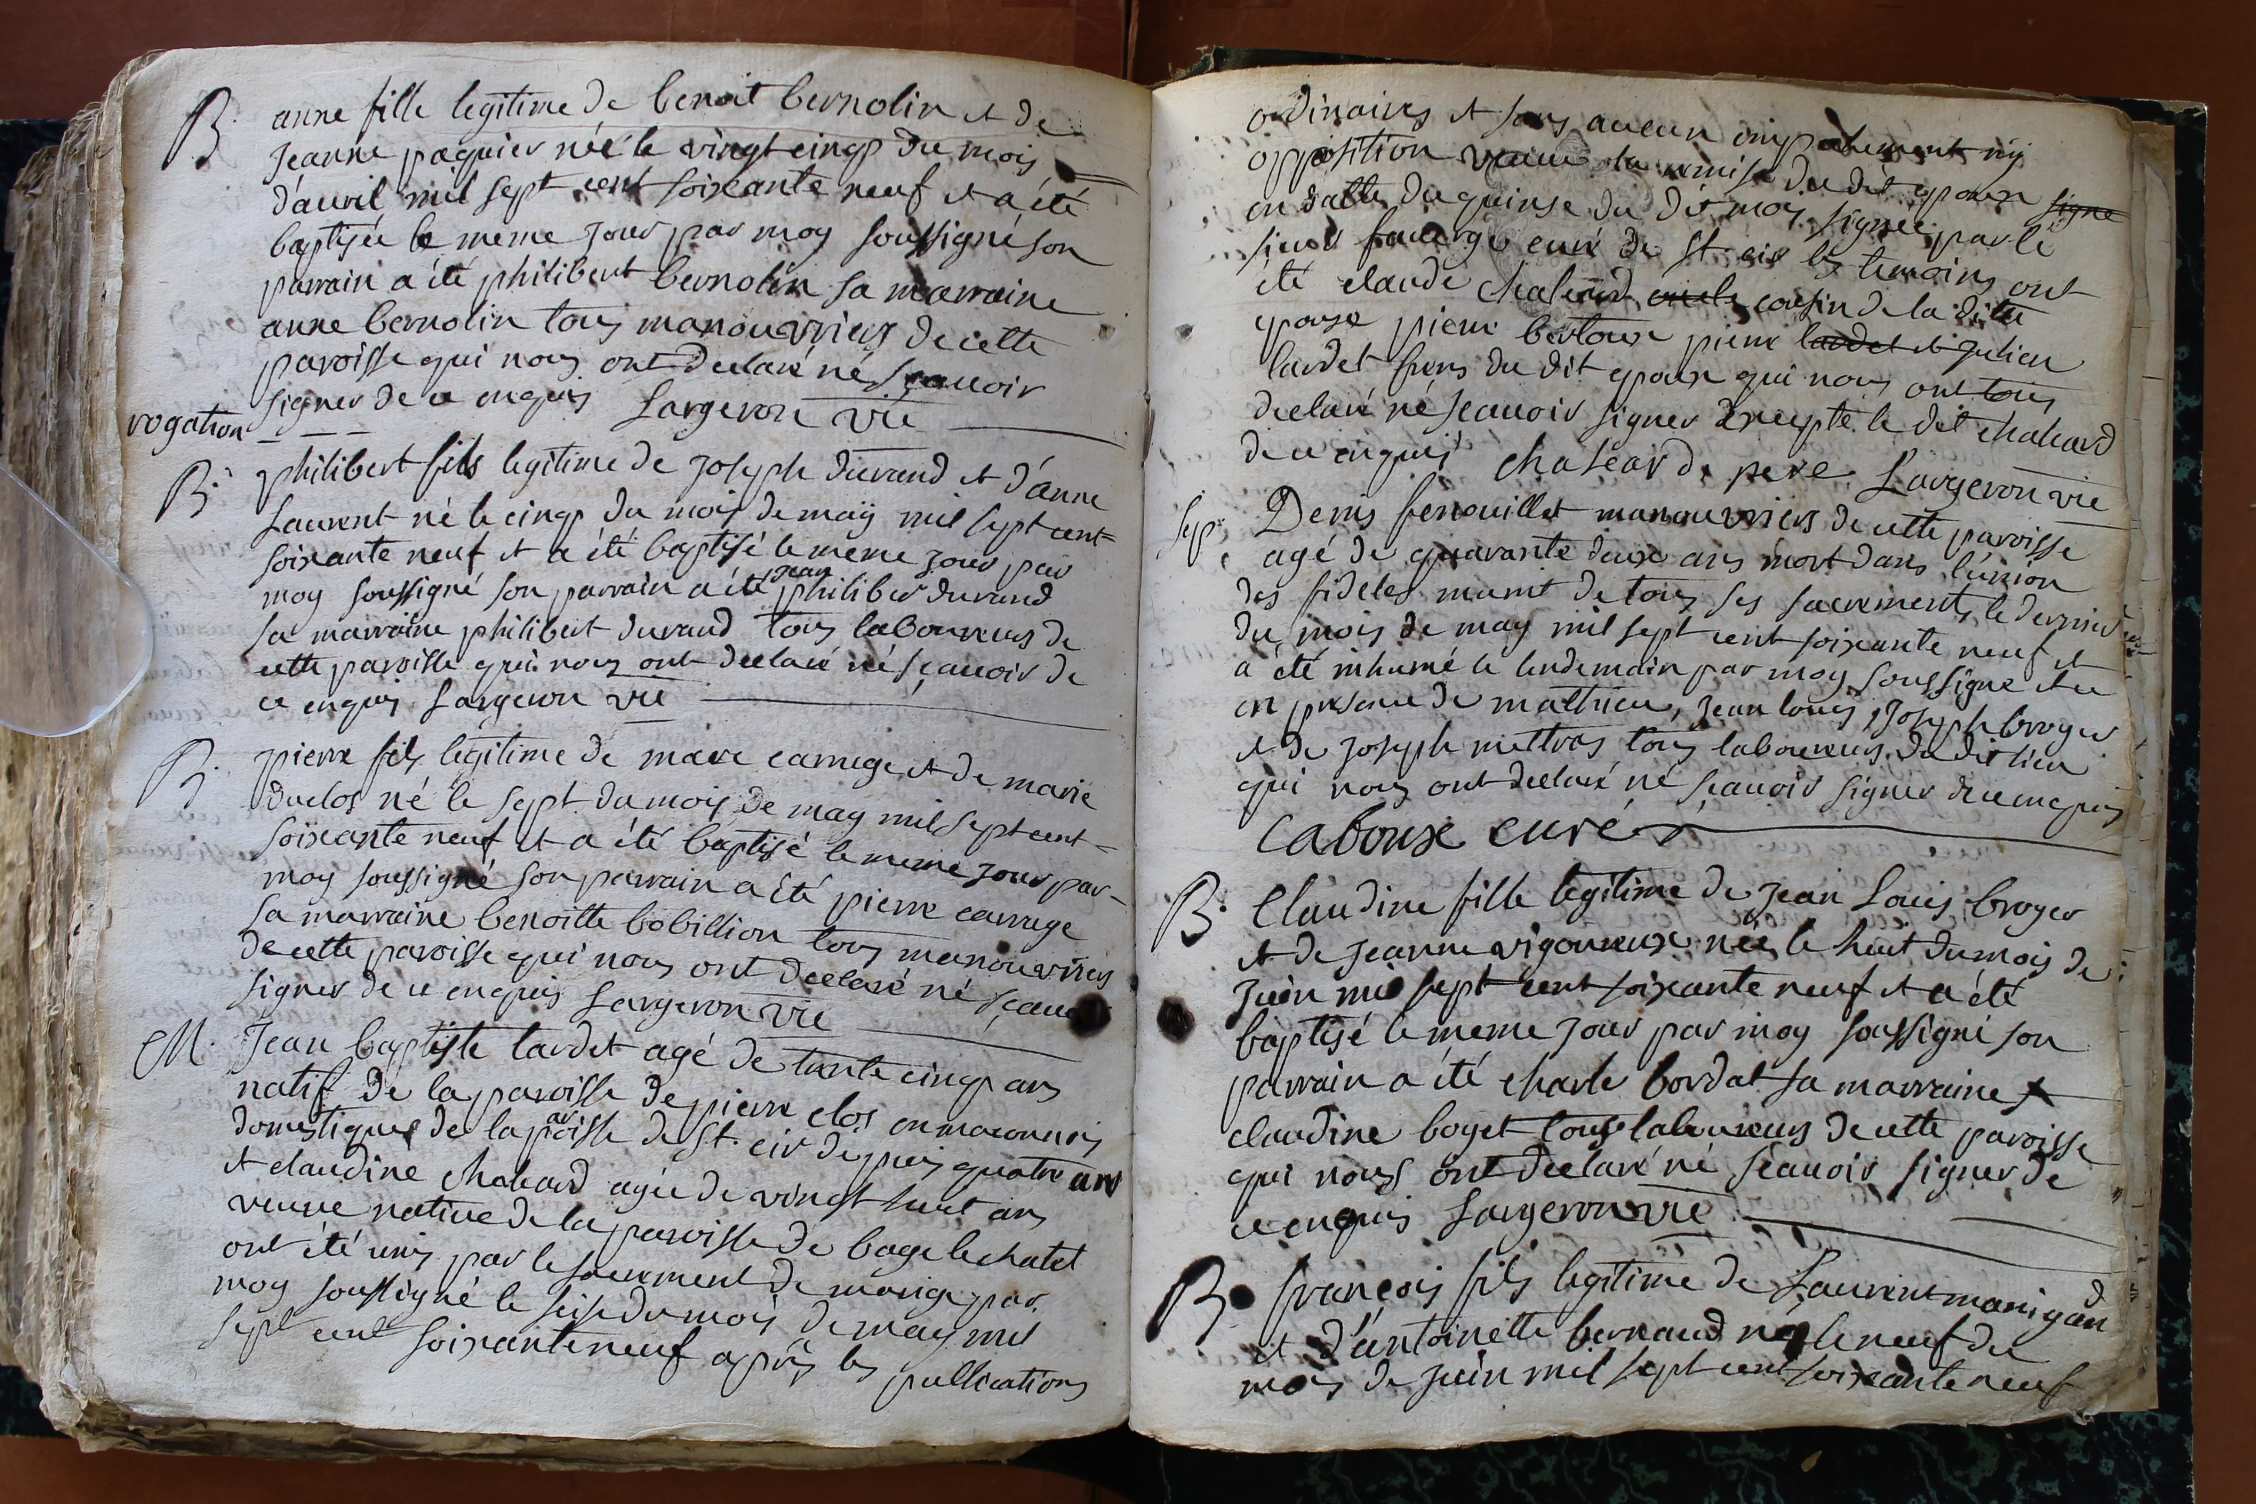 B. anne fille legitime de benoit bernolin et de
Jeanne paquier née le vingt cinq du mois
d'avril mil sept cent soixante neuf et a été
baptisée le meme jour par moy soussigné son
parrain a été philibert bernolin sa marraine
anne bernolin tous manouvriers de cette
paroisse qui nous ont declaré né sçauoir
signer de ce enquis Largeron vic
rogation
B. philibert fils legitime de joseph durand et d'anne
Laurent né le cinq du mois de maÿ mil sept cent=
soixante neuf et a été baptisé le meme jour par
moy soussigné son parrain a été jean philiber durand
sa marraine philibert durand tous laboureurs de
cette paroisse qui nous ont declaré né sçauoir de
ce enquis Largeron vic
B. pierre fils legitime de marc carruge et de marie
duclos né le sept du mois de may mil sept cent=
soixante neuf et a été baptisé le meme jour par-
moy soussigné son parrain a été pierre carruge
sa marraine benoitte bobillion tous manouvriers
de cette paroisse qui nous ont declaré né sçauoir
signer de ce enquis Largeron vic
M. Jean baptiste lardet agé de trente cinq ans
natif de la paroisse de pierre clos en maconnois
domestique de la paroisse de st. cir depuis quatre ans
et claudine chaleard agée de vingt huit ans
veuve native de la paroisse de bage le chatel
ont été unis par le sacrement de mariage par
moy soussigné le seise du mois de may mil
sept cent soixante neuf après les publications
ordinaires et sans aucun empechement ny
opposition venue la remise du dit epoux signe
en datte du quinse du dit mois signée par le
sieur fauerge curé de st cir les temoins ont
été claude chaleard oncle cousin de la ditte
epouse pierre bertoux pierre lardet et julien
lardet freres du dit epoux qui nous ont tous
declaré né sçauoir signer Excepté le dit chaleard
de ce enquis chaleard pere Largeron vic
sep. Denis fenouillet manouvriers de cette paroisse
agé de quarante deux ans mort dans l'union
des fideles munit de tous ses sacrements le dernier
du mois de may mil sept cent soixante neuf et
a été inhumé le lendemain par moy soussigné et ce
en presence de mathieu, jean louis, joseph broyer
et de joseph mettras tous laboureurs du dit lieu
qui nous ont declaré né sçauoir signer de ce enquis
Cabouse curé
B. Claudine fille legitime de jean Louis broyer
et de jeanne vigoureux née le huit du mois de
juin mil sept cent soixante neuf et a été
baptisé le meme jour par moy soussigné son
parrain a été charle bordat sa marraine
claudine boyet tous laboureurs de cette paroisse
qui nous ont declaré né sçauoir signer de
ce enquis Largeron vic
B. françois fils legitime de Laurent manigand
et d'antoinette bernaud né le neuf du
mois de juin mil sept cent soixante neuf